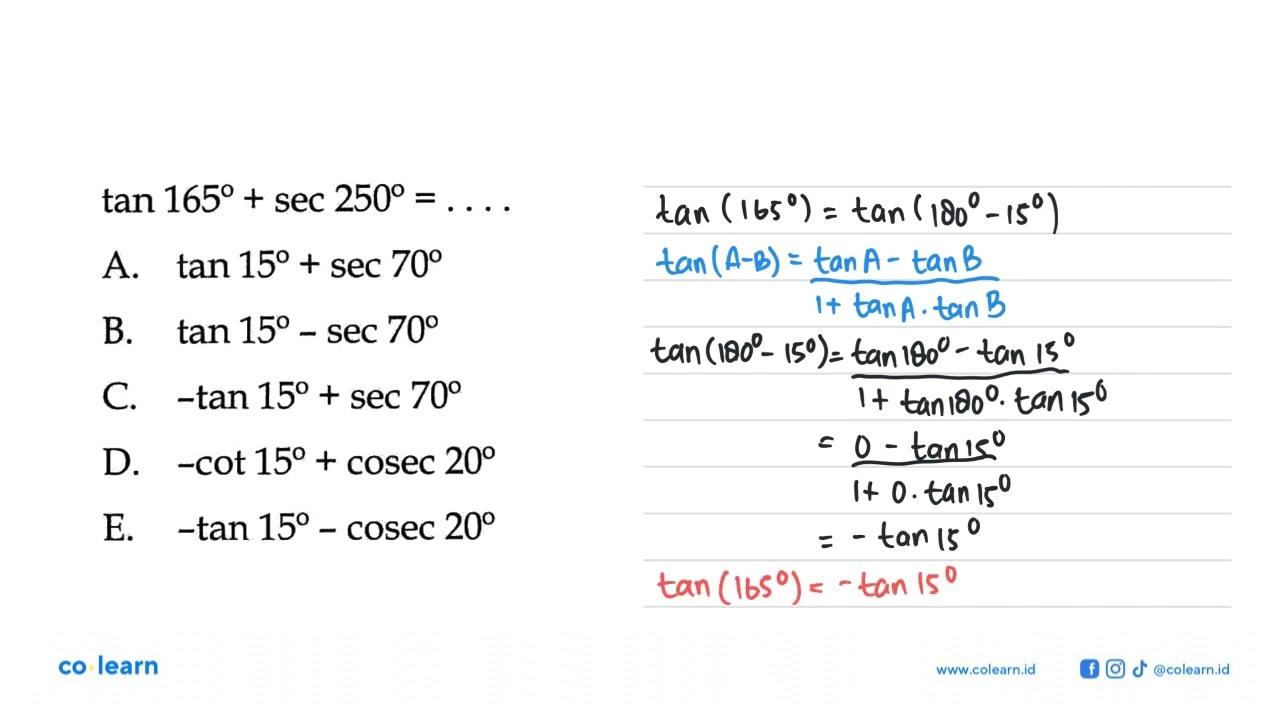 tan 165° + sec 250° = . . . .
A. tan 15° + sec 70°
B. tan 15° – sec 70°
C. –tan 15° + sec 70°
D. –cot 15° + cosec 20°
E. –tan 15° – cosec 20°
tan (165°) = tan (180° - 15°)
tan (A-B) = tan A - tan B
1+ tan A . tan B
tan (180° - 15°) = tan 180° - tan 15°
1 + tan 180° . tan 15°
= 0 - tan 15°
1+ 0 . tan 15°
= - tan 15°
tan (165°) = - tan 15°
co·learn
www.colearn.id
@colearn.id